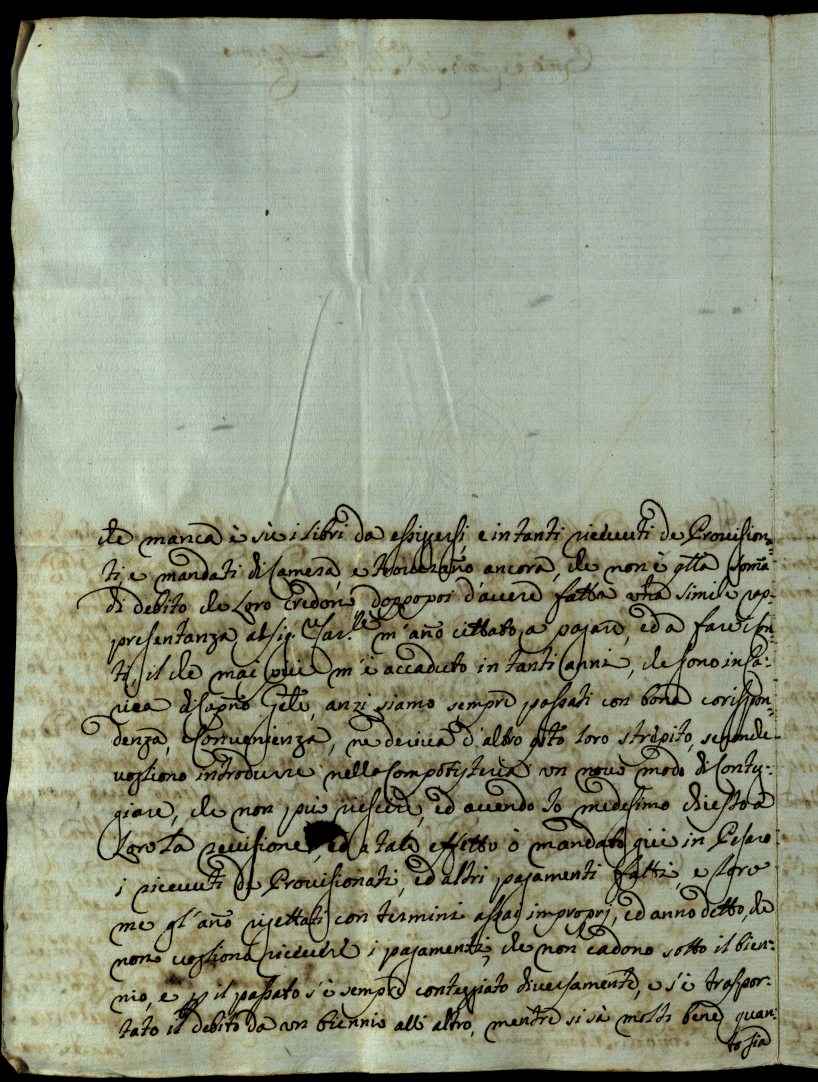 che manca è siè i libri da essiggersi, e in tanti riceuuti de Prouision=
ti, e mandati di Camera, e troueranno ancora, che non è qlla soma
di debito che loro credono doppo poi d'auere fatta vna simile rap=
presentanza al Sig.r Car.le m'ano cittato, a pagare, ed a fare i Con=
ti, il che mai più m'è accaduto in tanti anni, che sono in Ca=
rica di Capno Gele, anzi siamo sempre passati con bona corispon=
denza, e Conuenienza, ne deriua d'altro qsto loro strepito, se non che
vogliono introdurre nella Compotisteria vn nouo modo di Conteg=
giare, che non può riescire, ed auendo Io medesimo chiesto a
Loro la reuisione, ed a tale effetto ò mandato qui in Pesaro
i riceuuti de Prouisionati, ed altri pagamenti fatti, e loro
me gl'ano rigettati con termini assai improprj, ed anno detto, che
non vogliono riceuere i pagamenti, che non cadono sotto il bien=
nio, e p il passato s'è sempre conteggiato diuersamente, e s'è traspor=
tato il debito da vn biennio all'altro, mentre si sà molto bene quan=
to sia